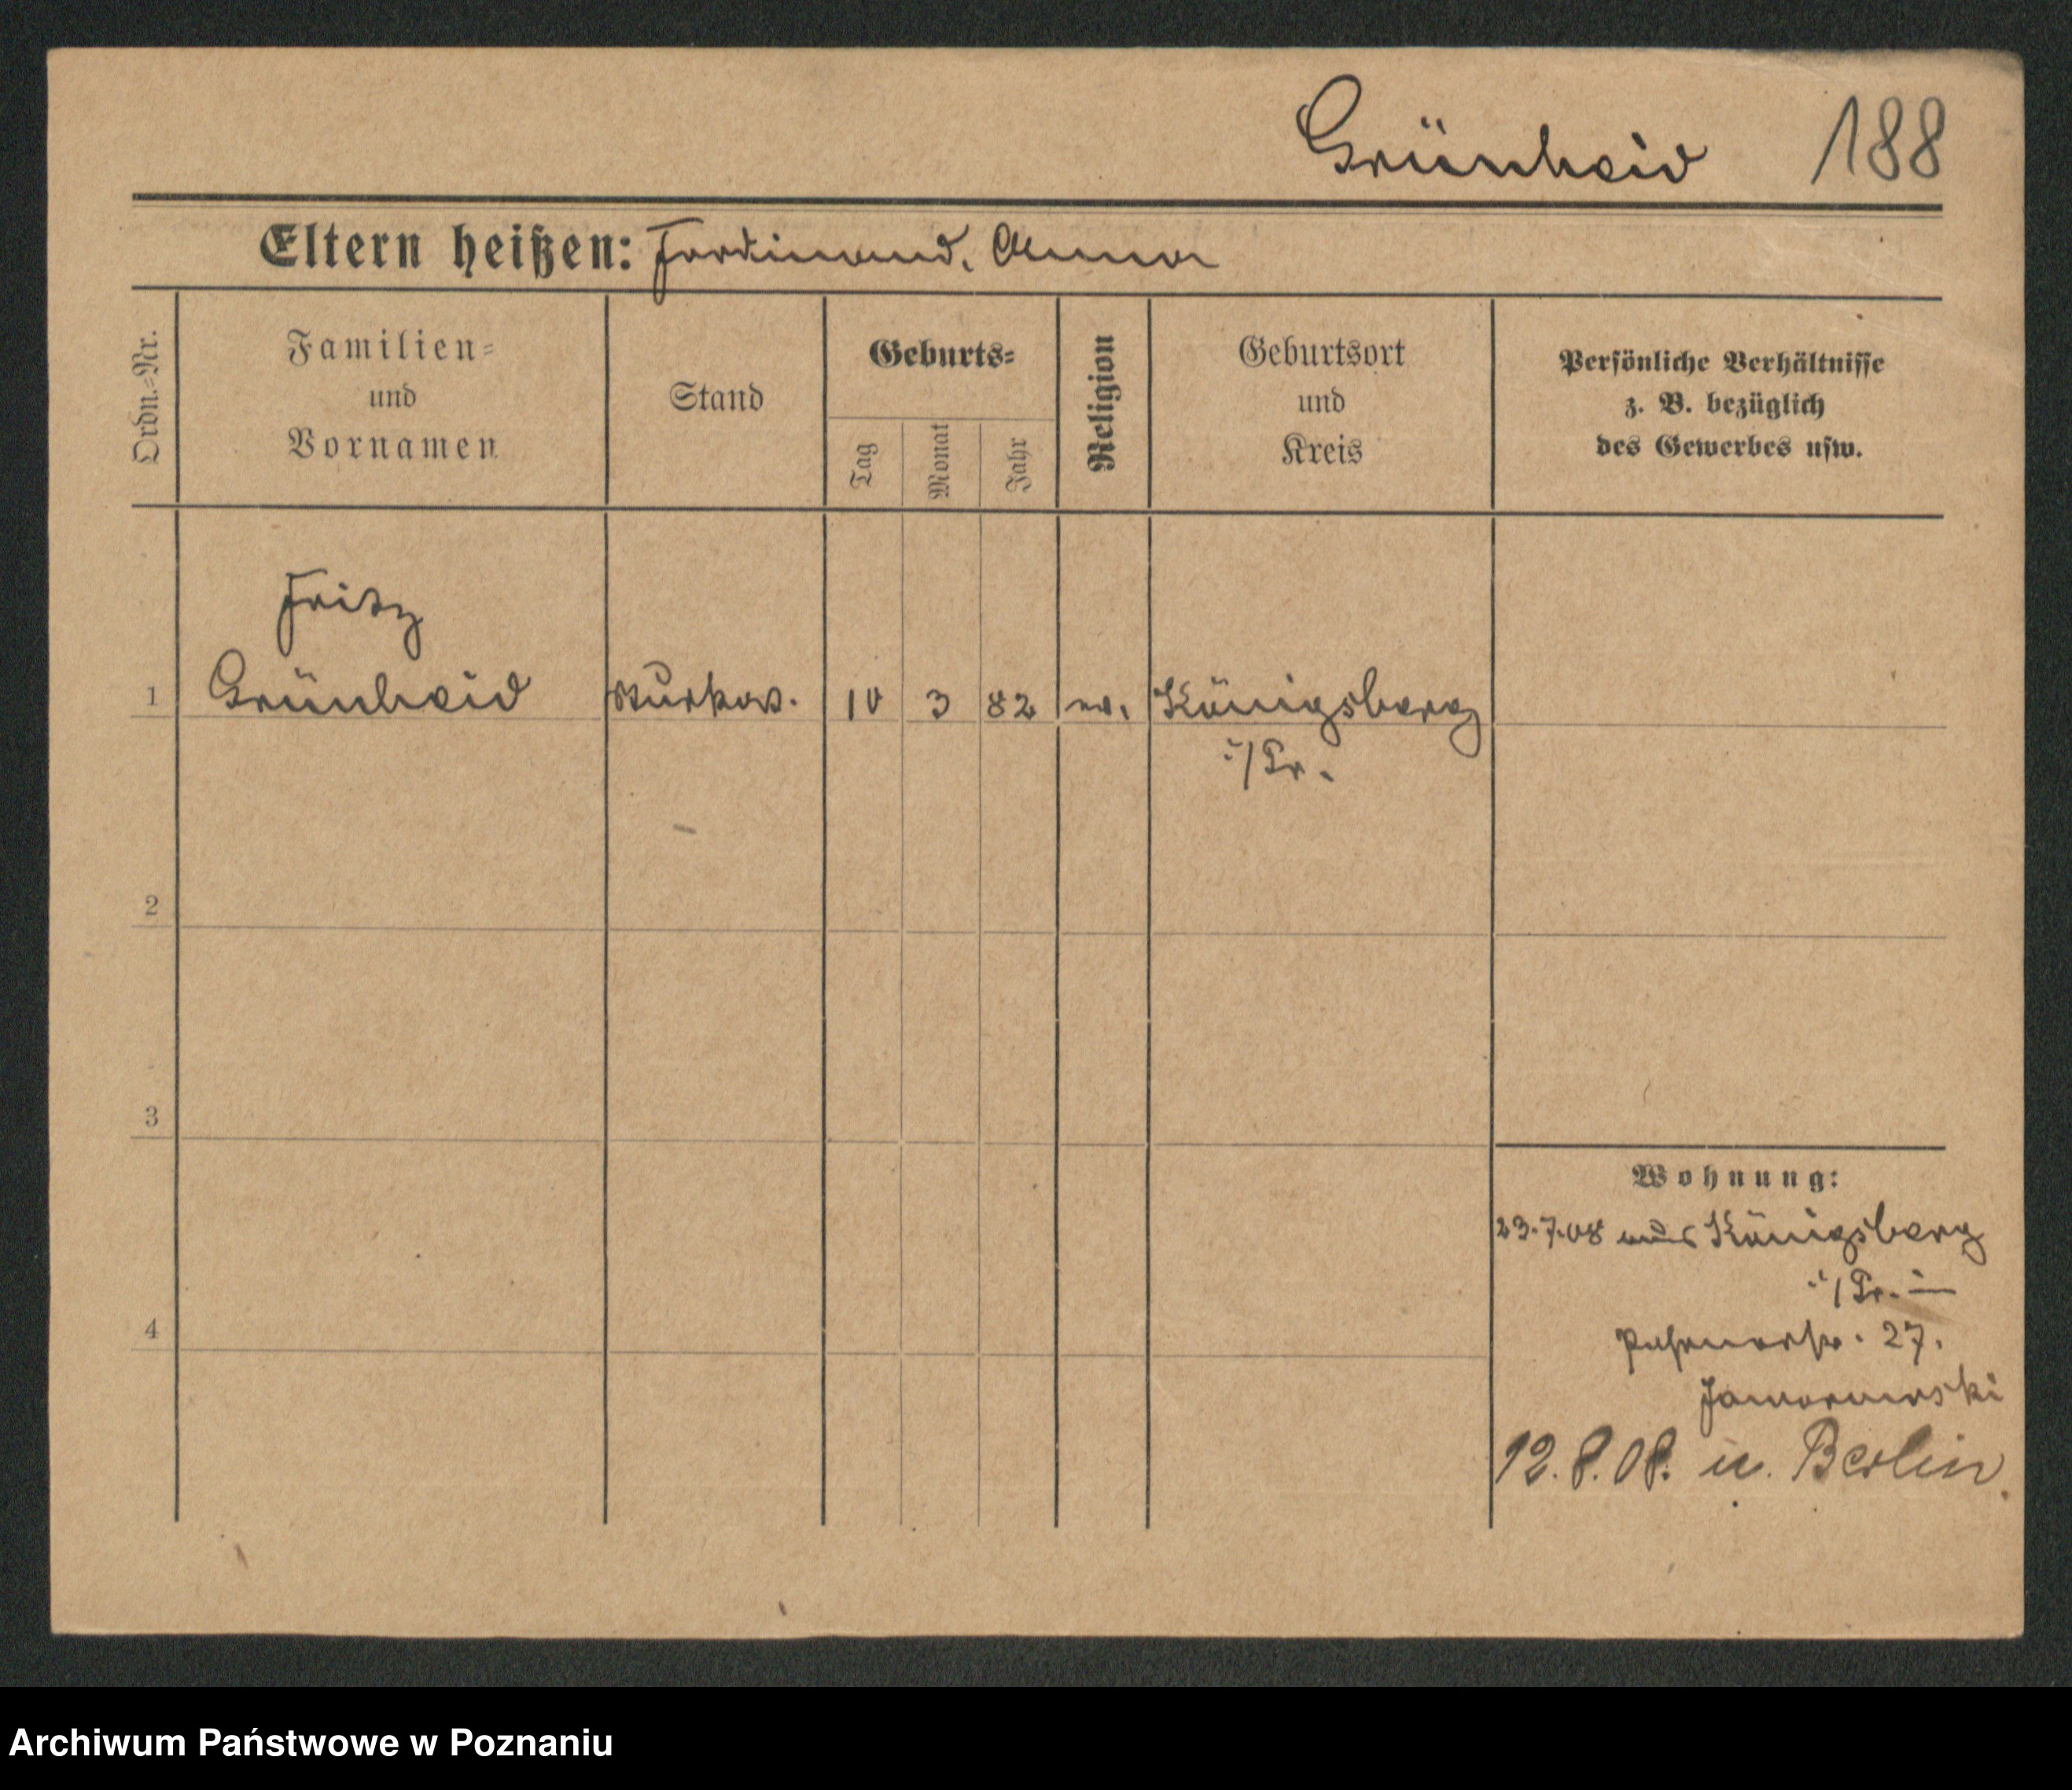 Grünheid 188
Eltern heißen: Ferdinand, Anna
Ordn.-Nr.
Familien-
und
Vornamen
Stand
Geburts-
Tag
Monat
Jahr
Religion
Geburtsort
und
Kreis
Persönliche Verhältnisse
z. B. bezüglich
des Gewerbes usw.
Fritz
1 Grünheid 10 3 82 ev. Königsberg
i/Pr.
2
3
4
Wohnung:
23.7.08 aus Königsberg
i/Pr. in
27.
12.8.08. n. Berlin.
Archiwum Państwowe w Poznaniu